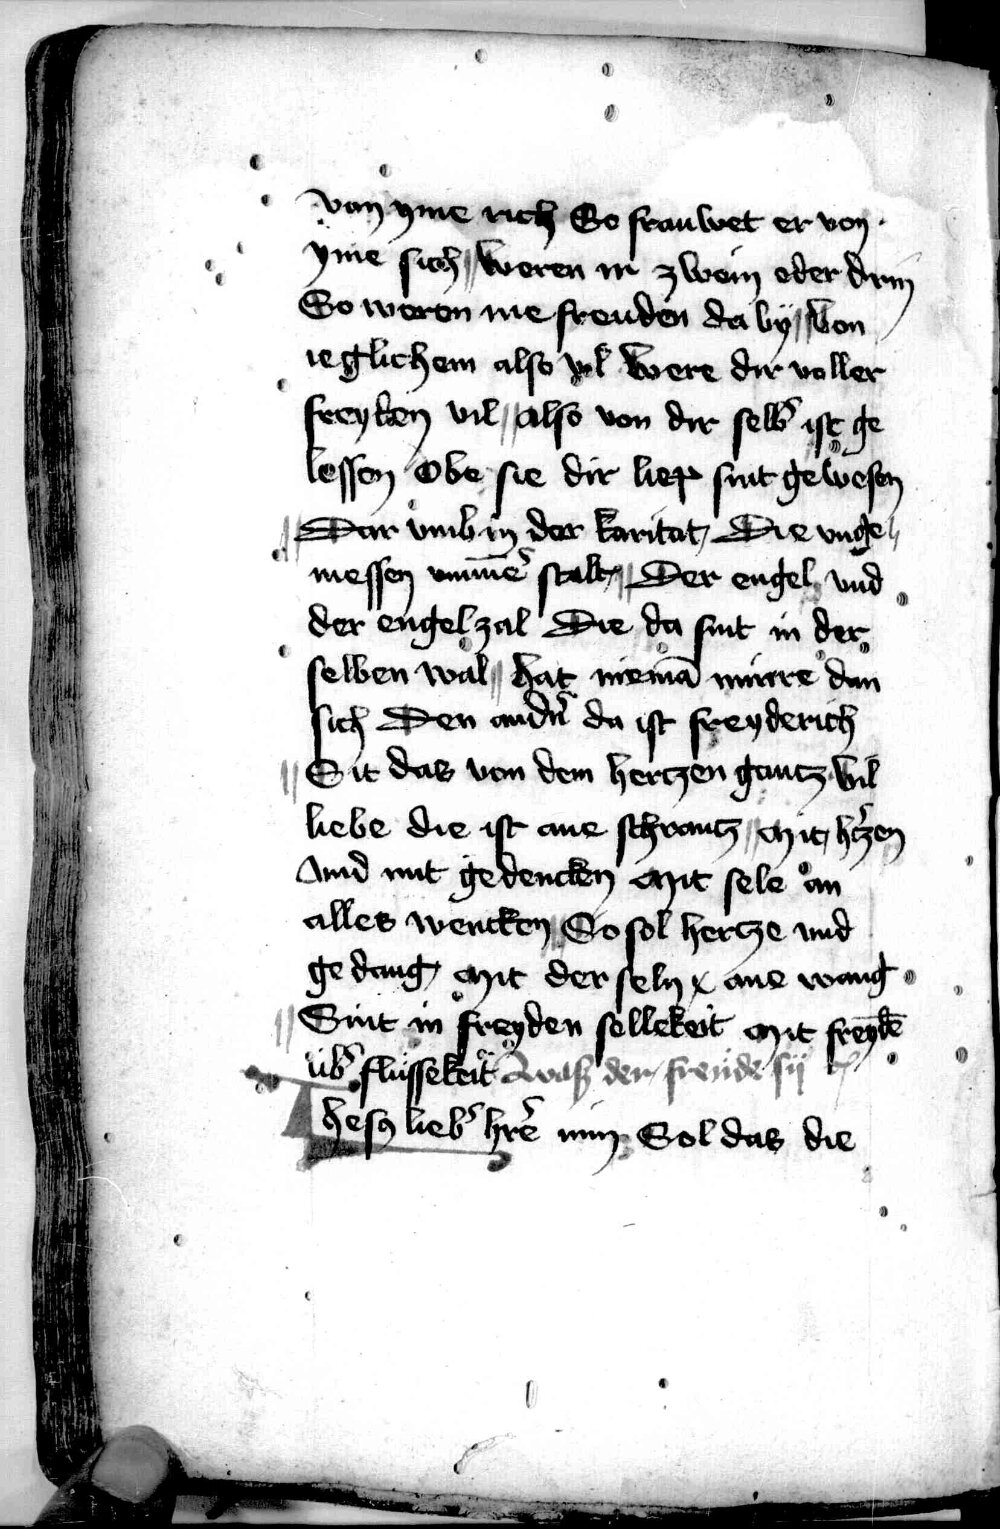 von yme rich So frauwet er von
yme sich || Weren ir zwein oder drin
So weren me freuden da by || Von
ieglichem also vil Were dir voller
freyden vil || Also von dir selbs ist ge
lessen Obe sie dir liep sint gewesen
|| Dar vmb in der karitat Die vnge
messen vmmer stalt || Der engel vnd
der engel zal Die da sint in der
selben wal || hat niemā minre dan
sich Den andrn da ist freyderich
|| Sit das von dem hertzen gantz Vil
liebe die ist ane schrantz || Mit hrzen
Vnd mit gedencken Mit sele an
alles wencken So sol hertze vnd
gedang Mit der seln ane wang
|| Sint in freyden sellekeit Mit freydē
übs flüssekeit Waß der freude sy
hesus liebs hre min Sol das die